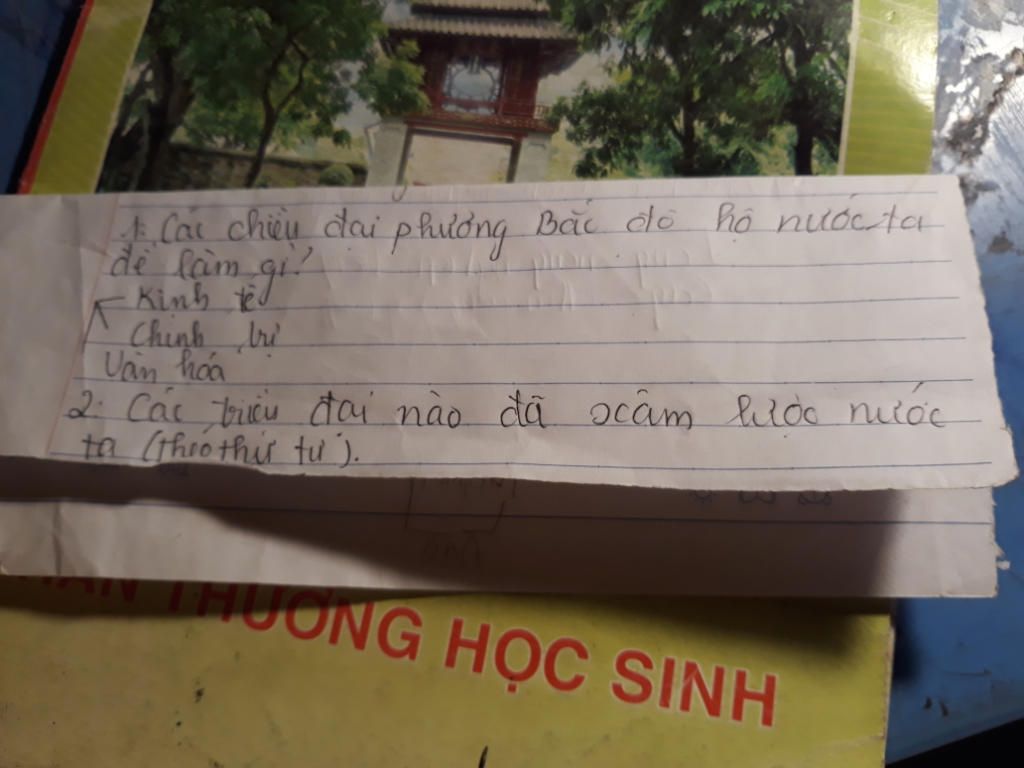 1. Các chiều đại phương Bắc đô hộ nước ta
để làm gì?
Kinh tế
Chính trị
Văn hóa
2. Các triều đại nào đã xâm lược nước
ta (theo thứ tự).
THƯỞNG HỌC SINH